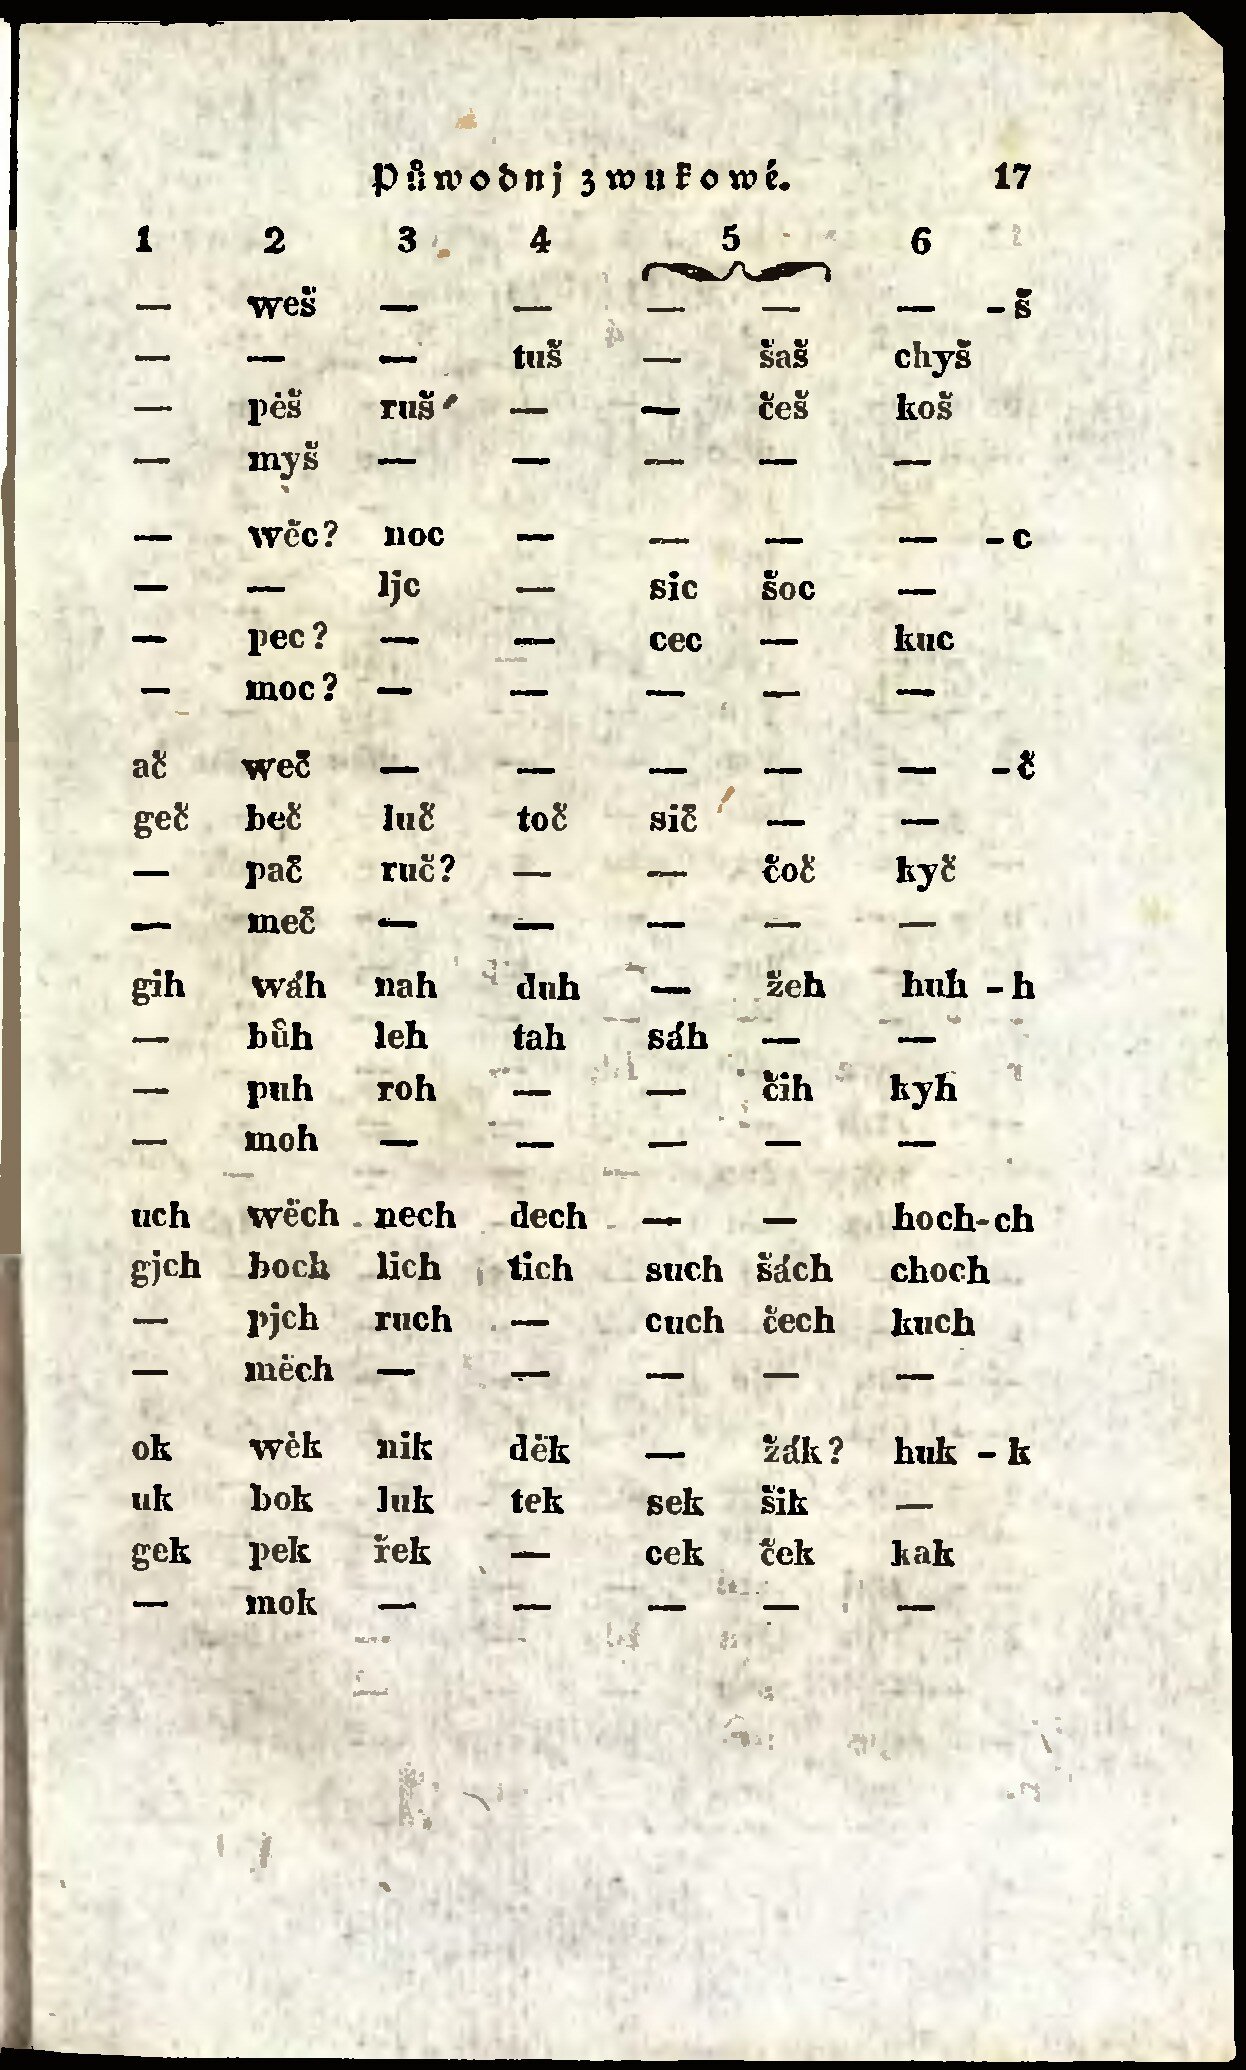 Půwodnj zwukowé. 17
1 2 3 4 5 6
— weš — — — — — -š
— — — tuš — šaš chyš
— pěš ruš — — češ koš
— myš — — — — —
— wěc? noc — — — — -c
— — ljc — sic šoc —
— pec? — — cec — kuc
— moc? — — — — —
ač weč — — — — — -č
geč beč luč toč sič — —
— pač ruč? — — čoč kyč
— meč — — — — —
gih wáh nah duh — žeh huh -h
— bůh leh tah sáh — —
— puh roh — — čih kyh
— moh — — — — —
uch wěch nech dech — — hoch-ch
gjch boch lich tich such šách choch
— pjch ruch — cuch čech kuch
— měch — — — — —
ok wěk nik děk — žák? huk -k
uk bok luk tek sek šik —
gek pek řek — cek ček kak
— mok — — — — —